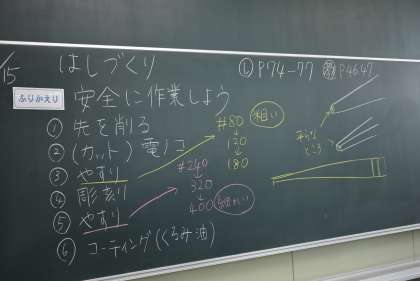 /15
はしづくり
Ⓛ P74-77 P46.47
ふりかえり
安全に作業しよう
① 先を削る
② (カット) 電ノコ
③ やすり
④ 彫刻
⑤ やすり
⑥ コーティング(くるみ油)
#80 粗い
↓
120
↓
180
#240
↓
320
↓
400 細かい
ところ